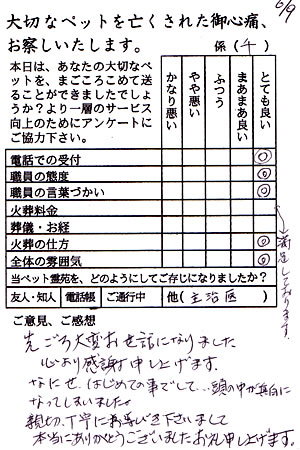 6/9
大切なペットを亡くされた御心痛、
お察しいたします。
係(千)
本日は、あなたの大切なペ
ットを、まごころこめて送
ることができましたでし
ょうか？より一層のサービス
向上のためにアンケートに
ご協力下さい。
かなり悪い
やや悪い
ふつう
まあまあ良い
とても良い
電話での受付 ◎
職員の態度 ◎
職員の言葉づかい ◎
火葬料金
葬儀・お経
火葬の仕方 ◎
全体の雰囲気 ◎
満足しております。
当ペット霊苑を、どのようにしてご存じになりましたか？
友人・知人 電話帳 ご通行中 他(主治医)
ご意見、ご感想
先ごろ大変お世話になりました
心より感謝申し上げます。
なにせ、はじめての事でして…頭の中が真白に
なってしまいました。
親切、丁寧に 下さいまして
本当にありがとうございましたお礼申し上げます。